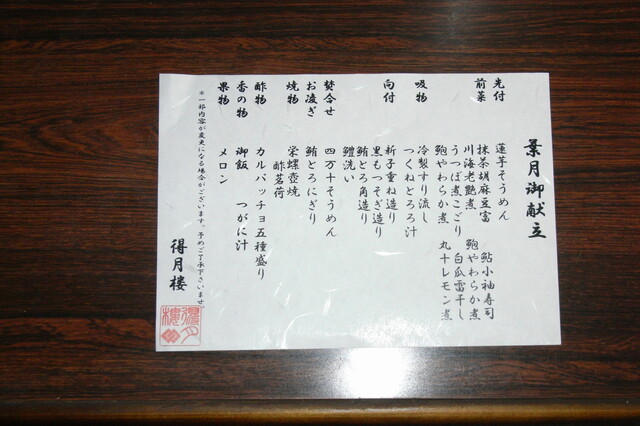 葉月御献立
先付　蓮芋そうめん
前菜　抹茶胡麻豆富　鮎小袖寿司
川海老艶煮　鮑やわらか煮
うつぼ煮こごり　白瓜雷干し
鮑やわらか煮　丸十レモン煮
吸物　冷製すり流し
つくねとろろ汁
向付　新子重ね造り
黒もつそぎ造り
鮪とろ角造り
鱧洗い
焚合せ　四万十そうめん
お凌ぎ　鮪とろにぎり
焼物　栄螺壺焼
酢茗荷
酢物　カルパッチョ五種盛り
香の物　御飯　つがに汁
果物　メロン
＊一部内容が変更になる場合がございます。予めご了承下さいませ。
得月楼
得月樓